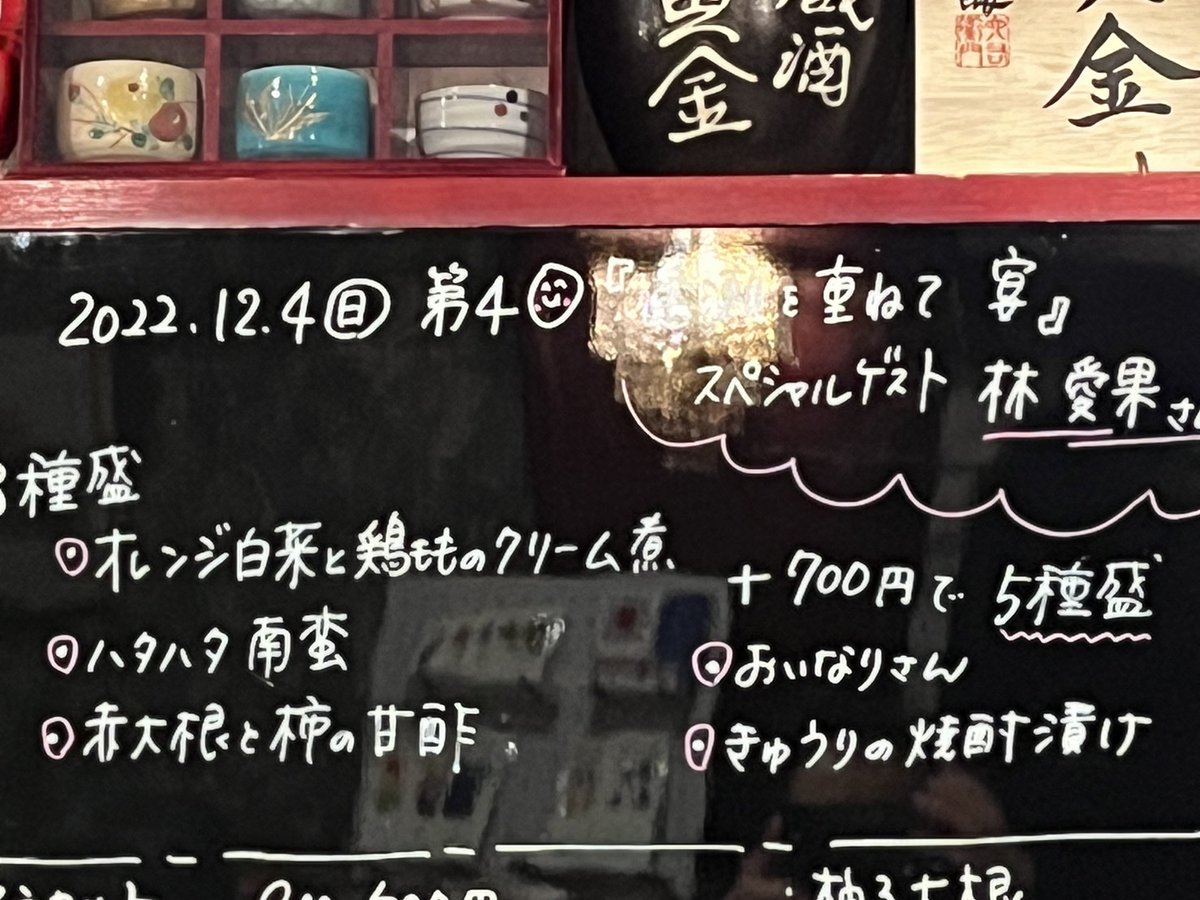 蔵酒
金
金
2022.12.4㊐ 第4 『 を重ねて 宴』
スペシャルゲスト 林 愛果さ
3種盛
オレンジ白菜と鶏もものクリーム煮
ハタハタ南蛮
赤大根と柿の甘酢
+700円で 5種盛
おいなりさん
きゅうりの焼酎漬け